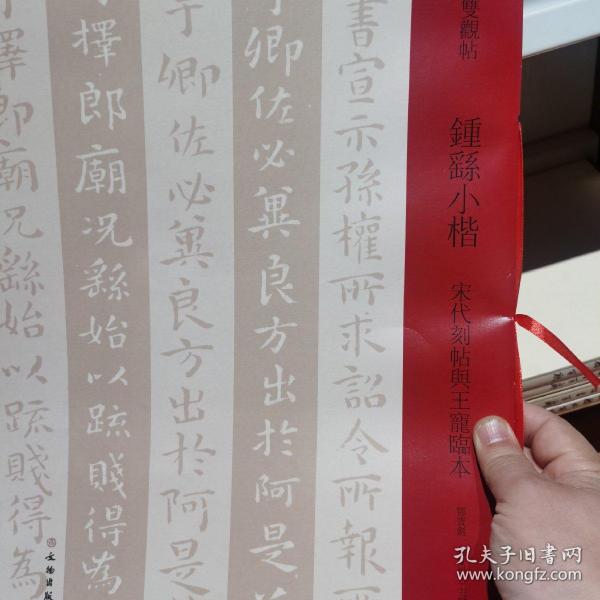 雙觀帖
鍾繇小楷
宋代刻帖與王寵臨本
書宣示孫權所求詔令所報
于卿佐必冀良方出於阿是
于卿佐必冀良方出於阿是
擇郎廟況繇始以疏賤得為
擇郎廟況繇始以疏賤得為
文物出版
孔夫子旧书网
www.kongfz.com